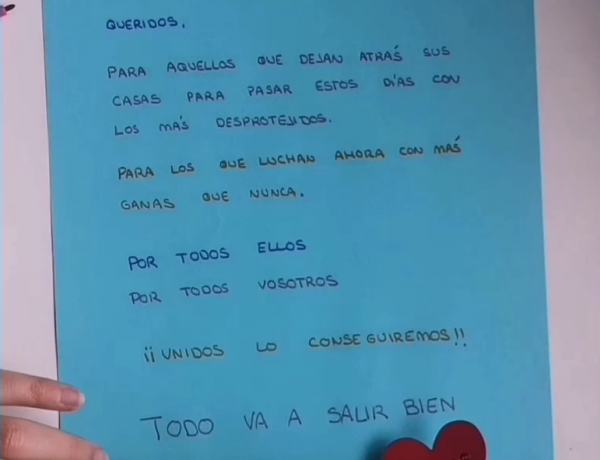 QUERIDOS,
PARA AQUELLOS QUE DEJAN ATRÁS SUS
CASAS PARA PASAR ESTOS DÍAS CON
LOS MÁS DESPROTEJIDOS.
PARA LOS QUE LUCHAN AHORA CON MÁS
GANAS QUE NUNCA.
POR TODOS ELLOS
POR TODOS VOSOTROS
¡¡UNIDOS LO CONSEGUIREMOS!!
TODO VA A SALIR BIEN